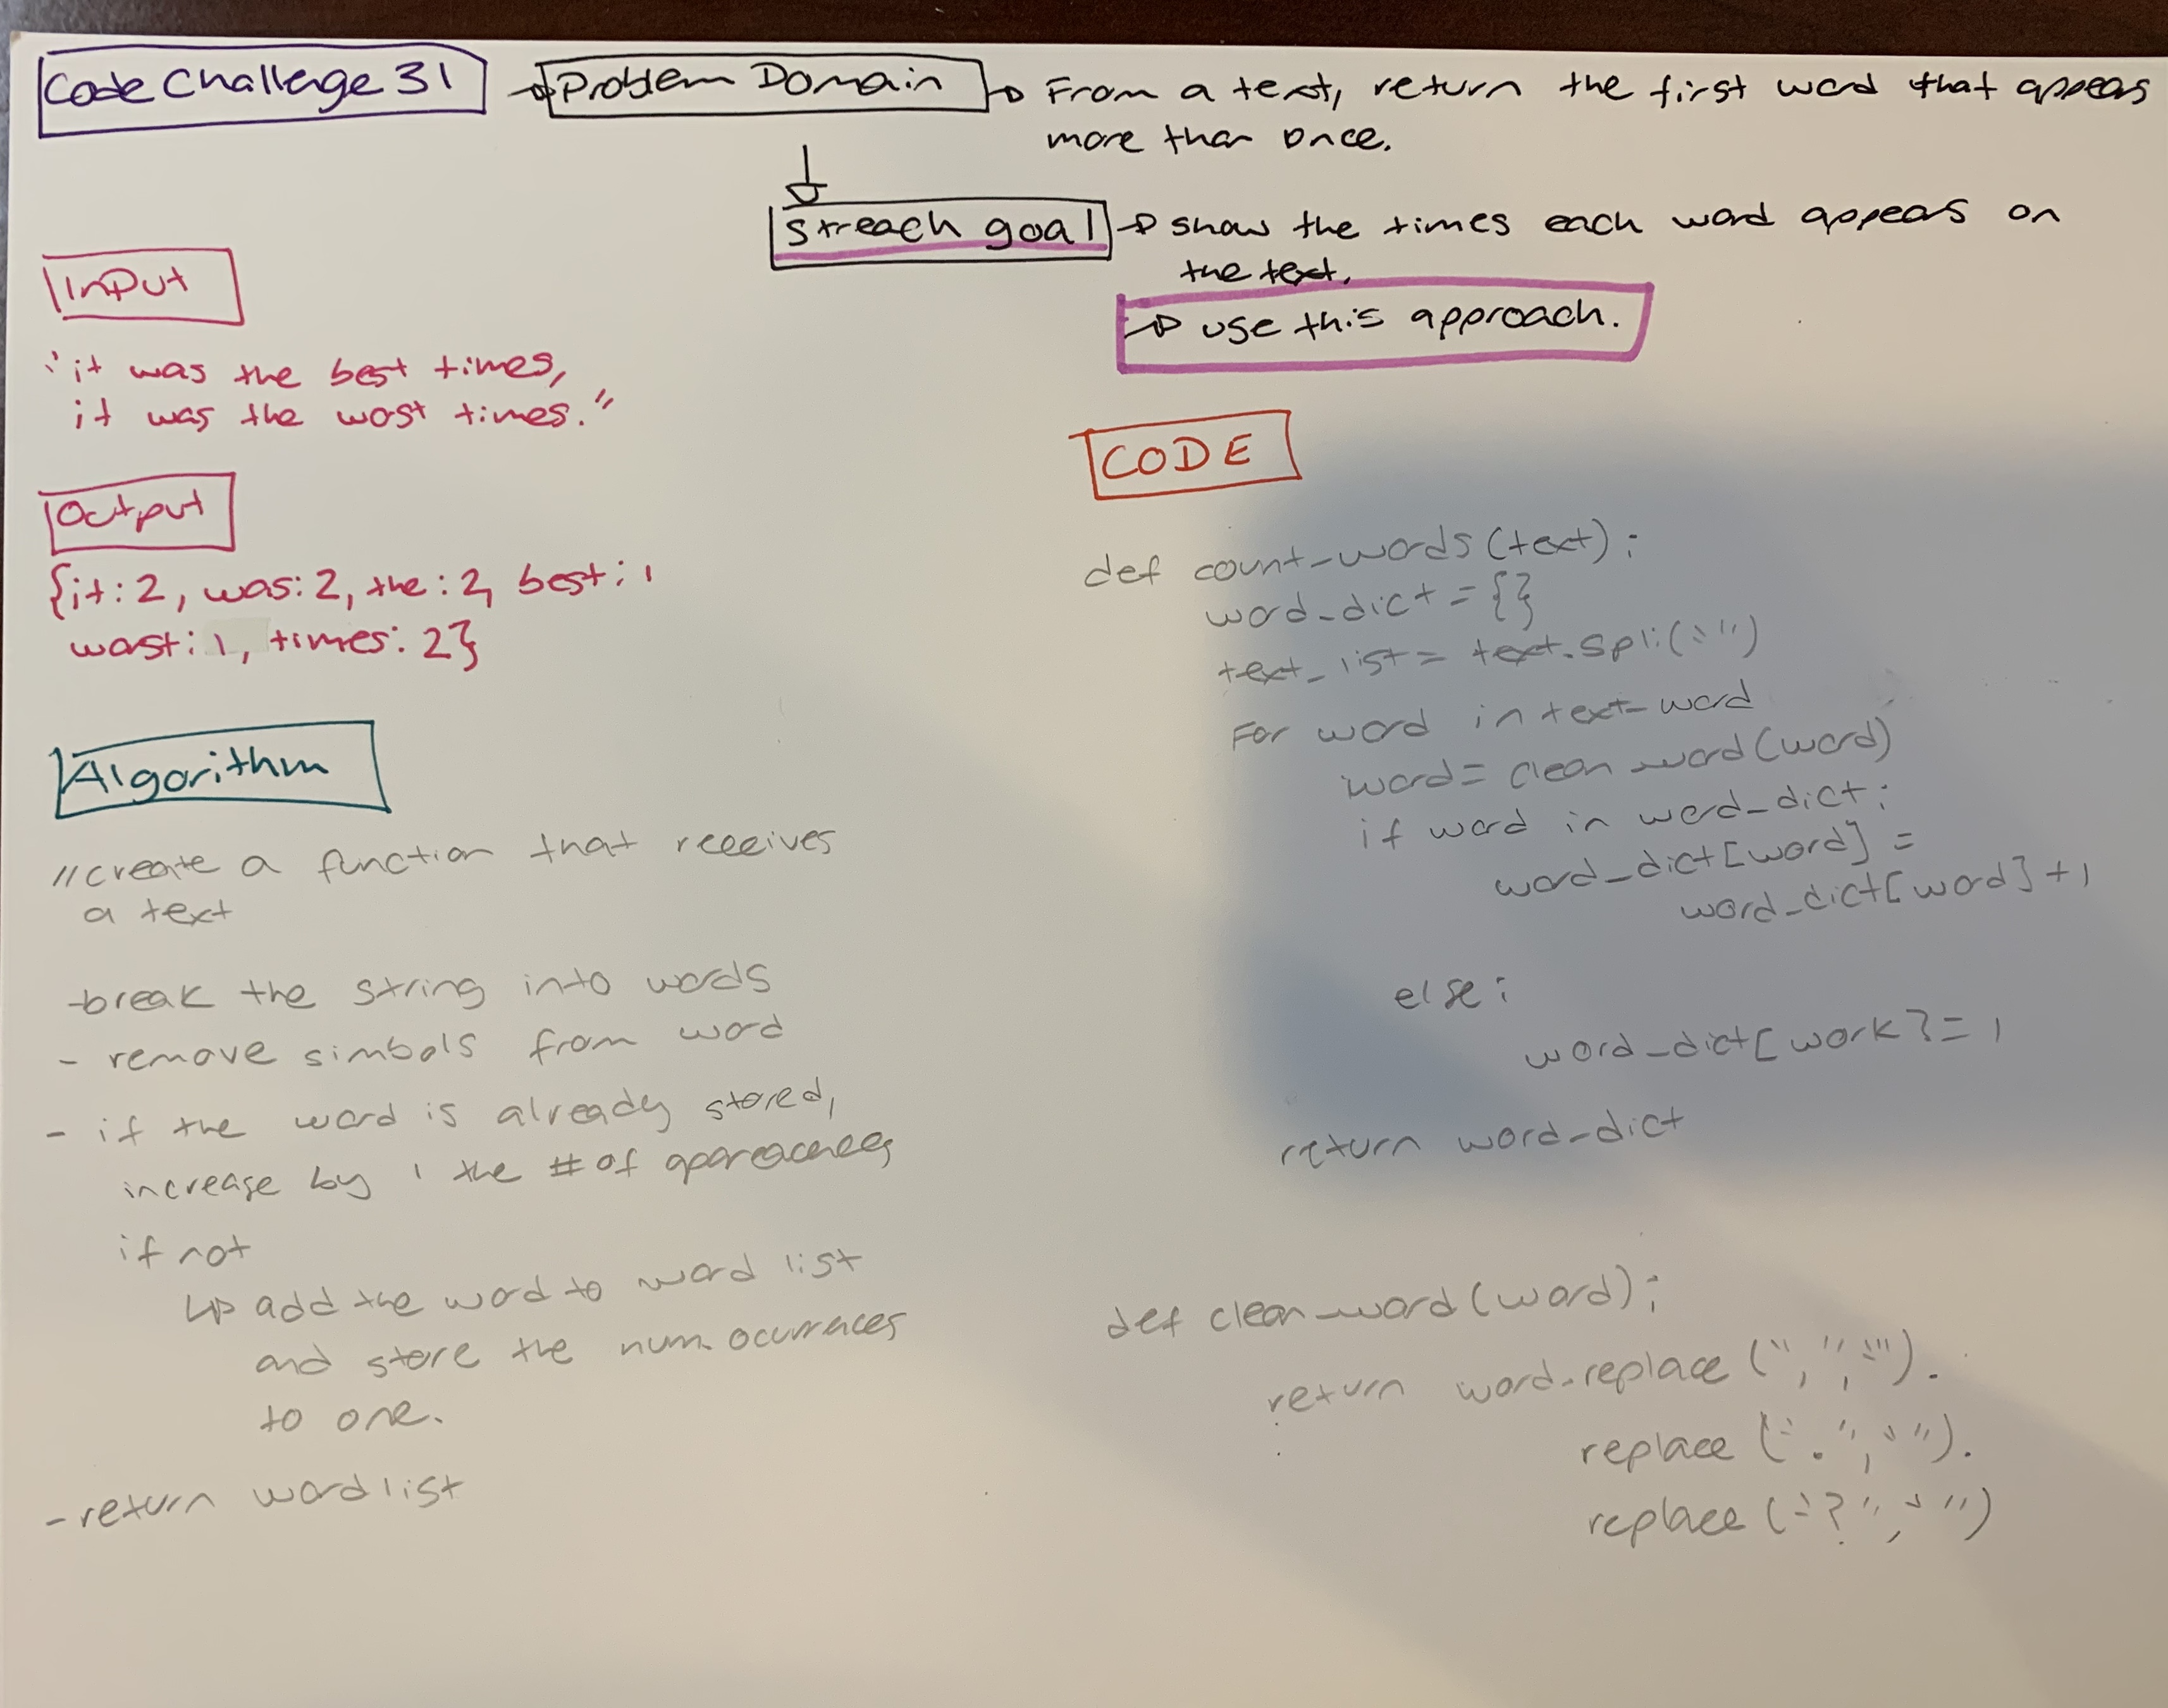 Code Challenge 31
Problem Domain
From a text, return the first word that appears
more than once.
streach goal
show the times each word appears on
the text.
use this approach.
Input
"it was the best times,
it was the worst times."
Output
{it: 2, was: 2, the: 2, best: 1
worst: 1, times: 2}
Algorithm
// create a function that receives
a text
- break the string into words
- remove simbols from word
- if the word is already stored,
increase by 1 the # of
if not
add the word to word list
and store the num. ocurrences
to one.
- return word list
CODE
def count_words (text):
word_dict = {}
text_list = text.spli(" ")
For word in text_word
word = clean_word (word)
if word in word_dict:
word_dict[word] =
word_dict[word] + 1
else:
word_dict[work] = 1
return word_dict
def clean_word (word):
return word.replace (",", "").
replace (".", "").
replace ("?", "")